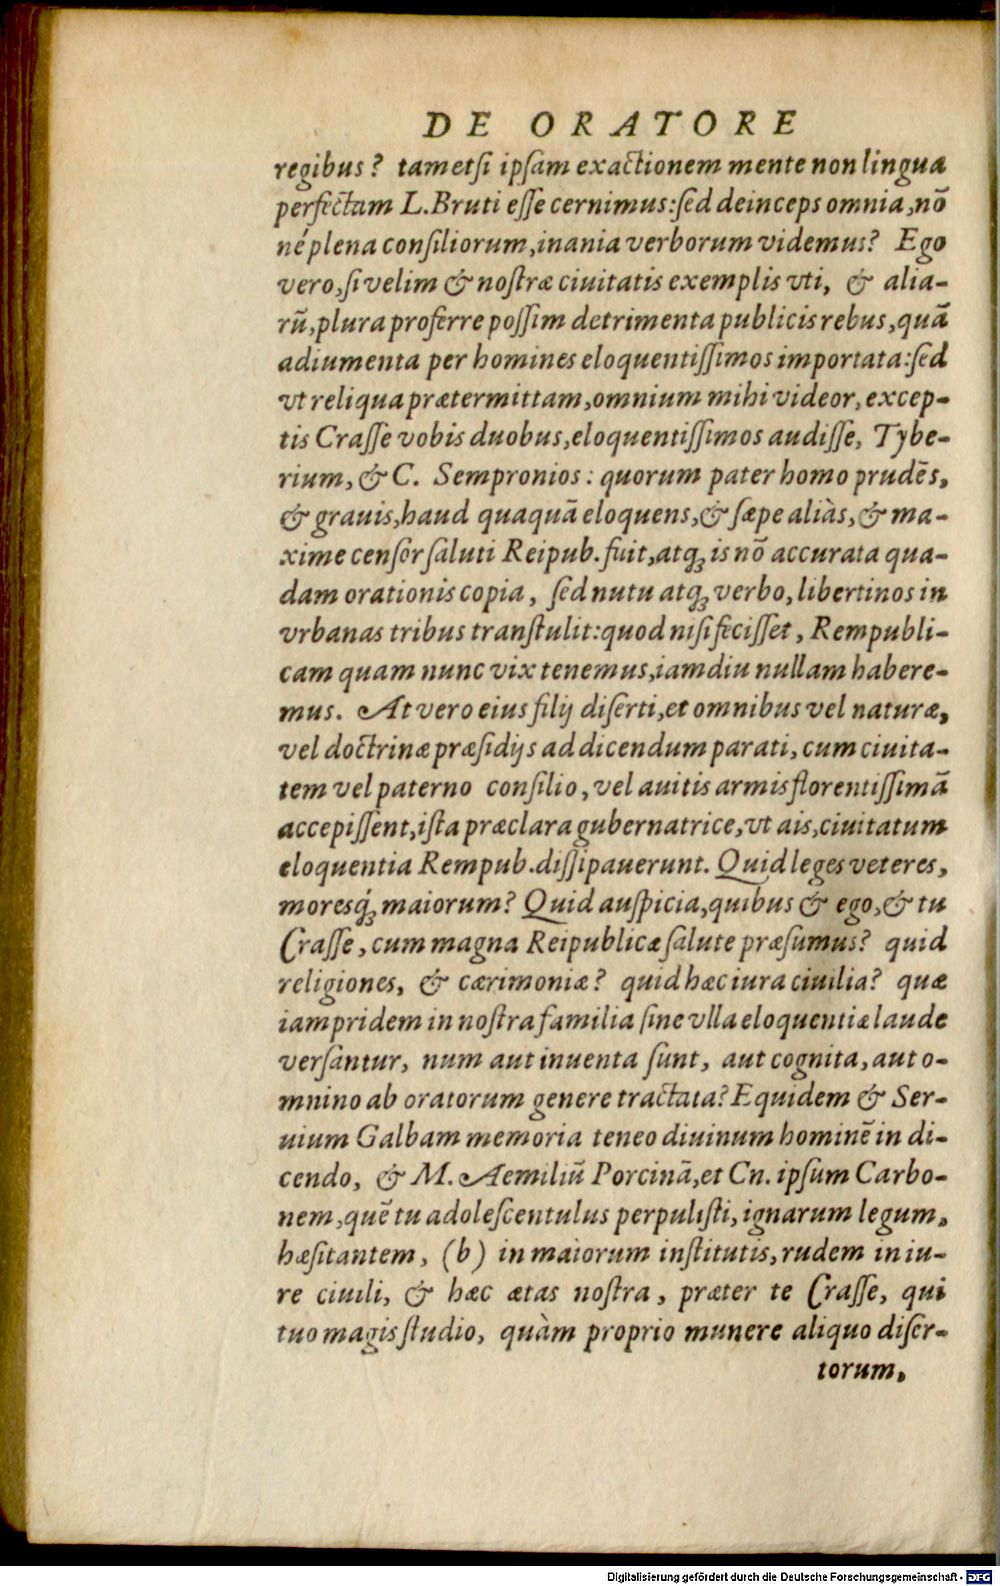 DE ORATORE
regibus? tametſi ipſam exactionem mente non lingua
perfectam L.Bruti eſſe cernimus:ſed deinceps omnia,nō
né plena conſiliorum,inania verborum videmus? Ego
vero,ſi velim & noſtræ ciuitatis exemplis vti, & alia-
rū,plura proferre poſſim detrimenta publicis rebus,quā
adiumenta per homines eloquentiſſimos importata:ſed
vt reliqua prætermittam,omnium mihi videor, excep-
tis Craſſe vobis duobus,eloquentiſſimos audiſſe, Tybe-
rium, & C. Sempronios: quorum pater homo prudēs,
& grauis,haud quaquā eloquens,& ſæpe aliàs,& ma-
xime cenſor ſaluti Reipub.fuit,atqꝫ is nō accurata qua-
dam orationis copia, ſed nutu atqꝫ verbo, libertinos in
vrbanas tribus tranſtulit:quod niſi feciſſet, Rempubli-
cam quam nunc vix tenemus,iamdiu nullam habere-
mus. At vero eius filij diſerti,et omnibus vel naturæ,
vel doctrinæ præſidijs ad dicendum parati, cum ciuita-
tem vel paterno conſilio, vel auitis armis florentiſſimā
accepiſſent,iſta præclara gubernatrice,vt ais,ciuitatum
eloquentia Rempub.diſſipauerunt. Quid leges veteres,
moresqꝫ́ maiorum? Quid auſpicia,quibus & ego,& tu
Craſſe, cum magna Reipublicæ ſalute præſumus? quid
religiones, & cærimoniæ? quid hæc iura ciuilia? quæ
iampridem in noſtra familia ſine vlla eloquentiæ laude
verſantur, num aut inuenta ſunt, aut cognita, aut o-
mnino ab oratorum genere tractata? Equidem & Ser-
uium Galbam memoria teneo diuinum hominē in di-
cendo, & M. Aemiliū Porcinā,et Cn. ipſum Carbo-
nem,quē tu adoleſcentulus perpuliſti, ignarum legum,
hæſitantem, (b) in maiorum inſtitutis, rudem in iu-
re ciuili, & hæc ætas noſtra, præter te Craſſe, qui
tuo magis ſtudio, quàm proprio munere aliquo diſer-
torum,
Digitalisierung gefördert durch die Deutsche Forschungsgemeinschaft - DFG